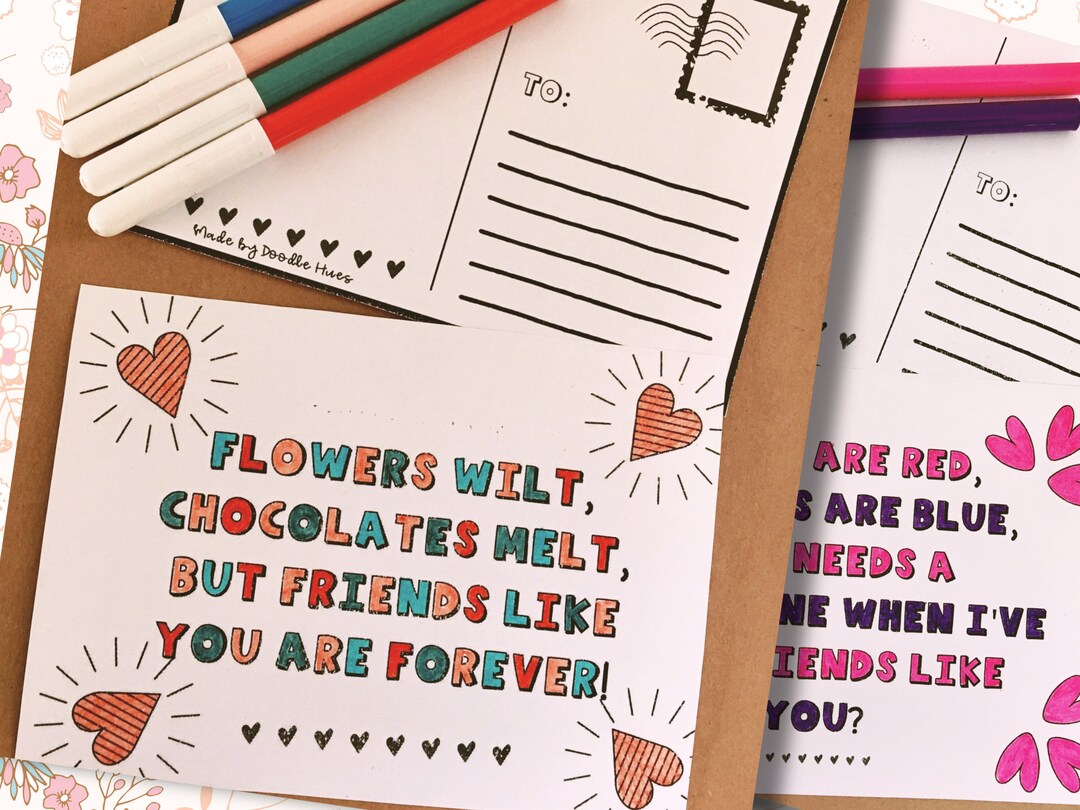 TO:
Made by Doodle Hues
FLOWERS WILT,
CHOCOLATES MELT,
BUT FRIENDS LIKE
YOU ARE FOREVER!
TO:
ARE RED,
ARE BLUE,
NEEDS A
WHEN I'VE
LIKE
YOU?